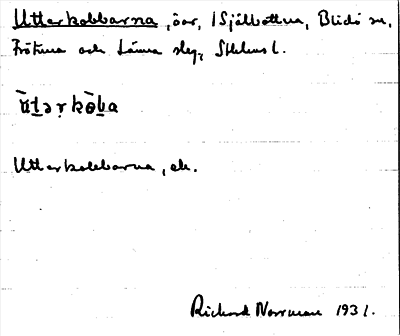 Utterkobbarna, öar, i Själbottna, Blidö sn,
Frötuna och Länna slg, Sthlms l.
ùt̲ər̥kòb̲a
Utterkobbarna, ek.
Richard Norrman 1931.